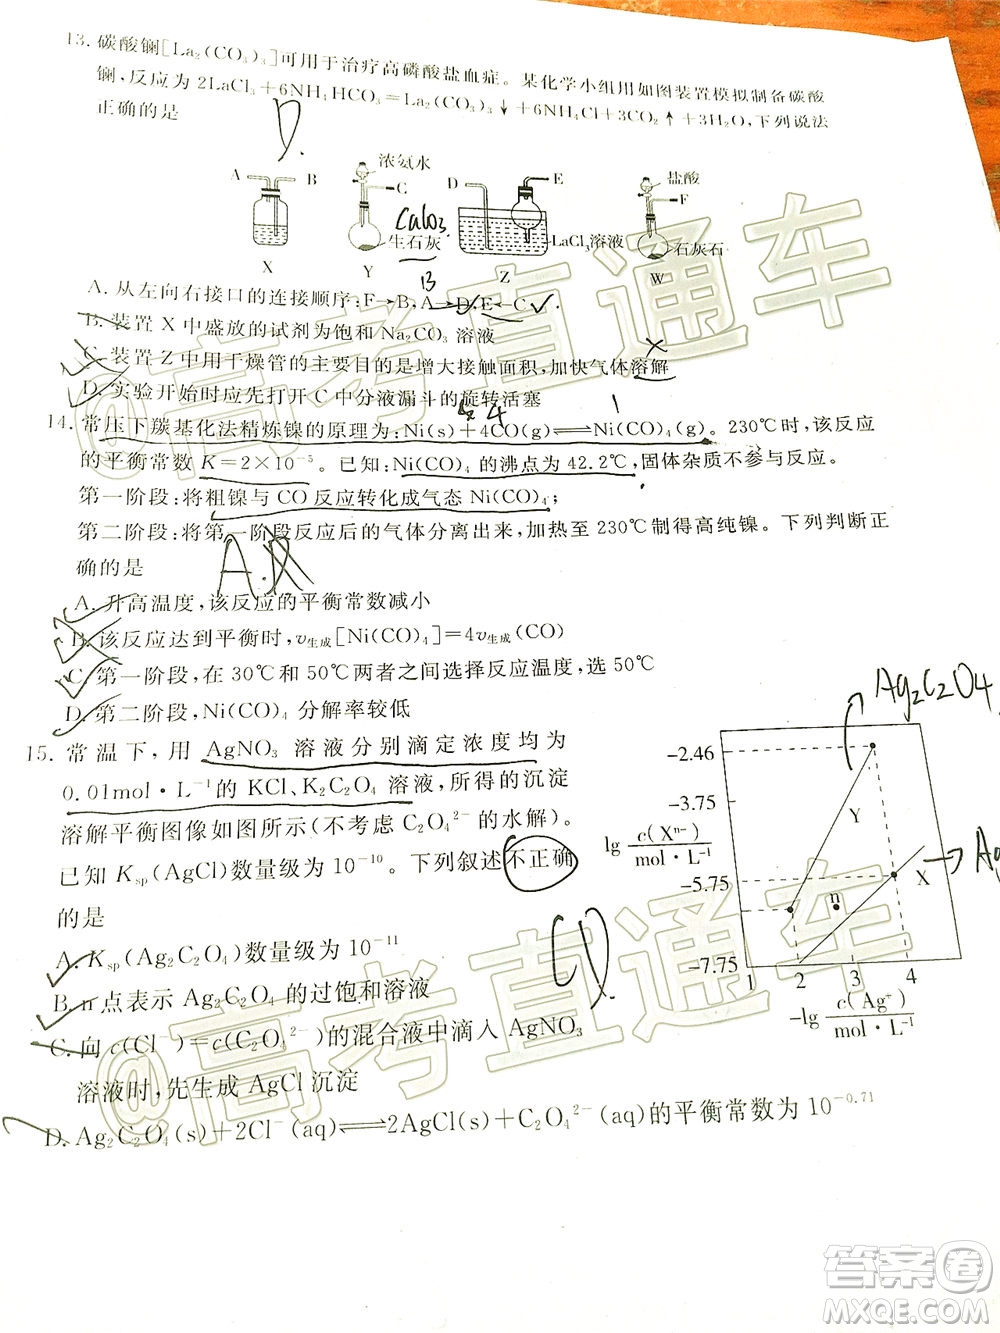 13. 碳酸镧[La₂(CO₃)₃]可用于治疗高磷酸盐血症。某化学小组用如图装置模拟制备碳酸
镧,反应为2LaCl₃+6NH₄HCO₃=La₂(CO₃)₃↓+6NH₄Cl+3CO₂↑+3H₂O,下列说法
正确的是
D.
浓氨水 盐酸
A B C D E F
CaCO₃
生石灰 LaCl₃溶液 石灰石
X Y Z W
B
A. 从左向右接口的连接顺序:F→B,A→D,E←C
B. 装置 X 中盛放的试剂为饱和 Na₂CO₃ 溶液
C. 装置 Z 中用干燥管的主要目的是增大接触面积,加快气体溶解
D. 实验开始时应先打开 C 中分液漏斗的旋转活塞
4 1
14. 常压下羰基化法精炼镍的原理为:Ni(s)+4CO(g)⇌Ni(CO)₄(g)。230℃时,该反应
的平衡常数 K=2×10⁻⁵。已知:Ni(CO)₄ 的沸点为 42.2℃,固体杂质不参与反应。
第一阶段:将粗镍与 CO 反应转化成气态 Ni(CO)₄;
第二阶段:将第一阶段反应后的气体分离出来,加热至 230℃制得高纯镍。下列判断正
确的是
A.
A. 升高温度,该反应的平衡常数减小
B. 该反应达到平衡时,v生成[Ni(CO)₄]=4v生成(CO)
C. 第一阶段,在 30℃和 50℃两者之间选择反应温度,选 50℃
D. 第二阶段,Ni(CO)₄ 分解率较低
15. 常温下,用 AgNO₃ 溶液分别滴定浓度均为
0.01mol·L⁻¹的 KCl、K₂C₂O₄ 溶液,所得的沉淀
溶解平衡图像如图所示(不考虑 C₂O₄²⁻的水解)。
已知 Ksp(AgCl)数量级为 10⁻¹⁰。下列叙述不正确
的是
A. Ksp(Ag₂C₂O₄)数量级为 10⁻¹¹
B. n 点表示 Ag₂C₂O₄ 的过饱和溶液
C. 向 c(Cl⁻)=c(C₂O₄²⁻)的混合液中滴入 AgNO₃
溶液时,先生成 AgCl 沉淀
D. Ag₂C₂O₄(s)+2Cl⁻(aq)⇌2AgCl(s)+C₂O₄²⁻(aq)的平衡常数为 10⁻⁰·⁷¹
Ag₂C₂O₄
-2.46
-3.75
lg c(Xⁿ⁻)/mol·L⁻¹
-5.75
-7.75
Y
n
X
1 2 3 4
-lg c(Ag⁺)/mol·L⁻¹
@高考直通车
@高考直通车
答案圈
MXQE.COM